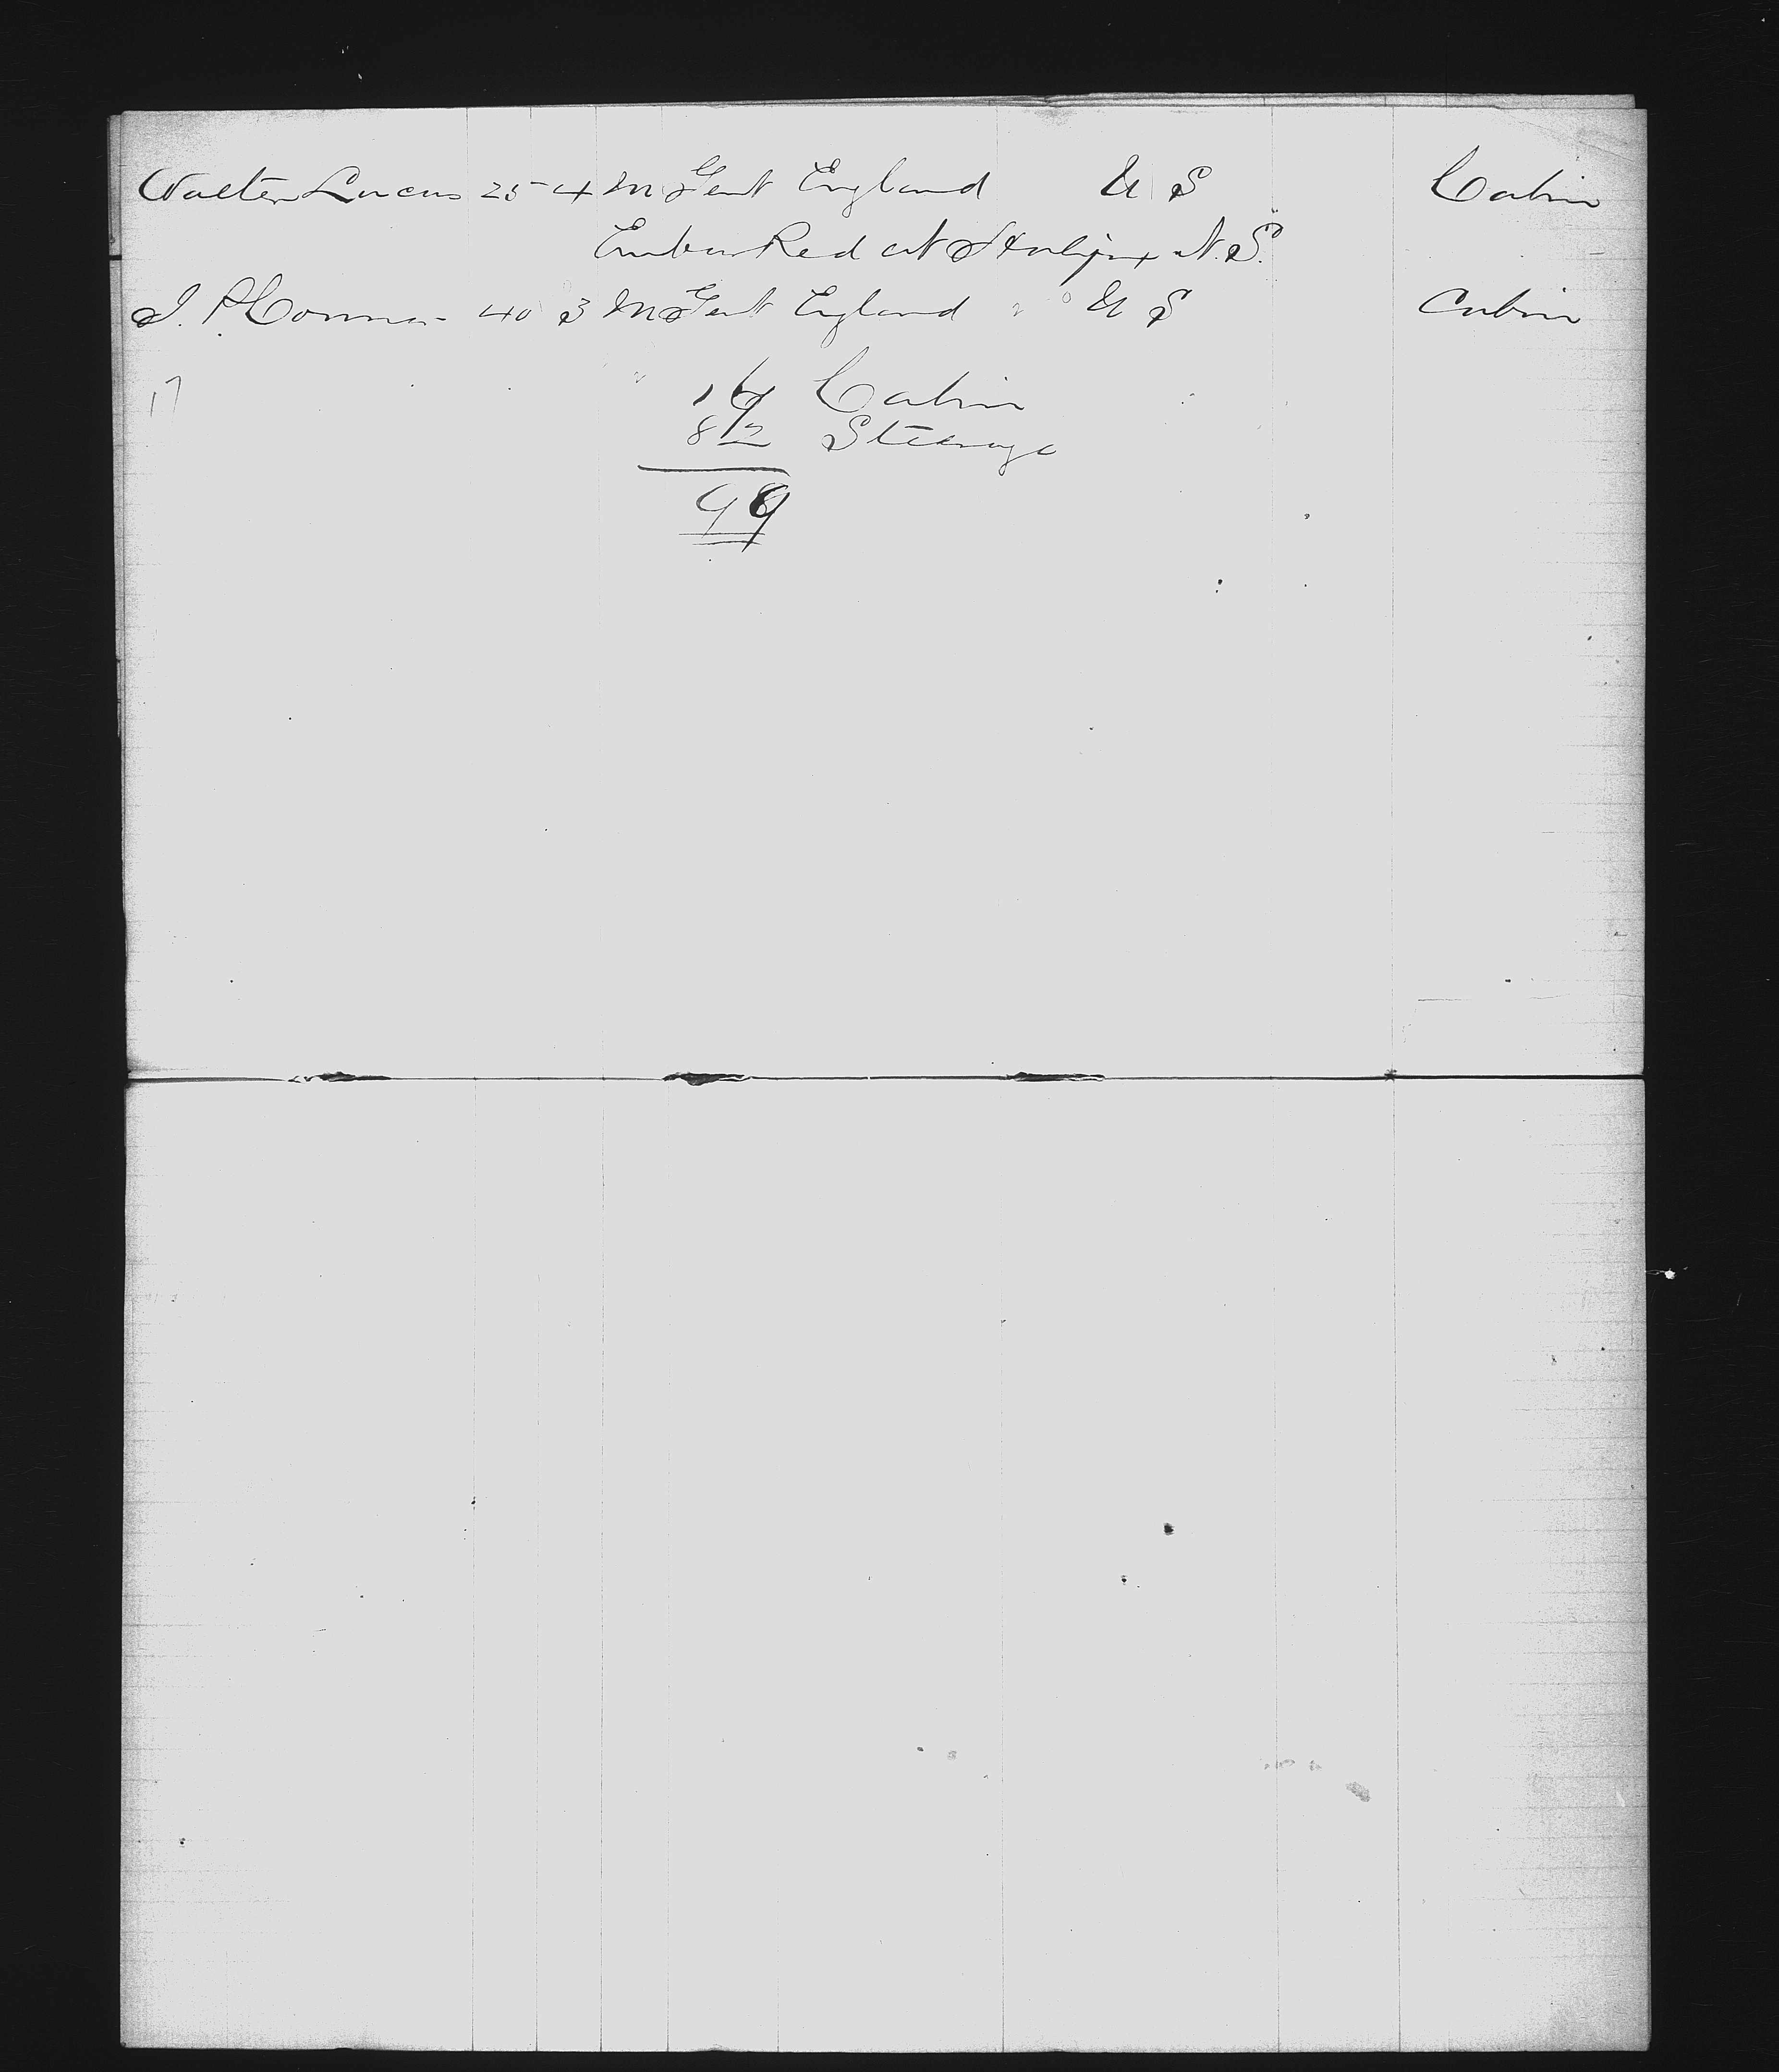 Walter Lucas 25 4 M Gent England U S Cabin
Embarked at Halifax N.S.
40 3 M Gent England U S Cabin
17 Cabin
82 Steerage
99
17